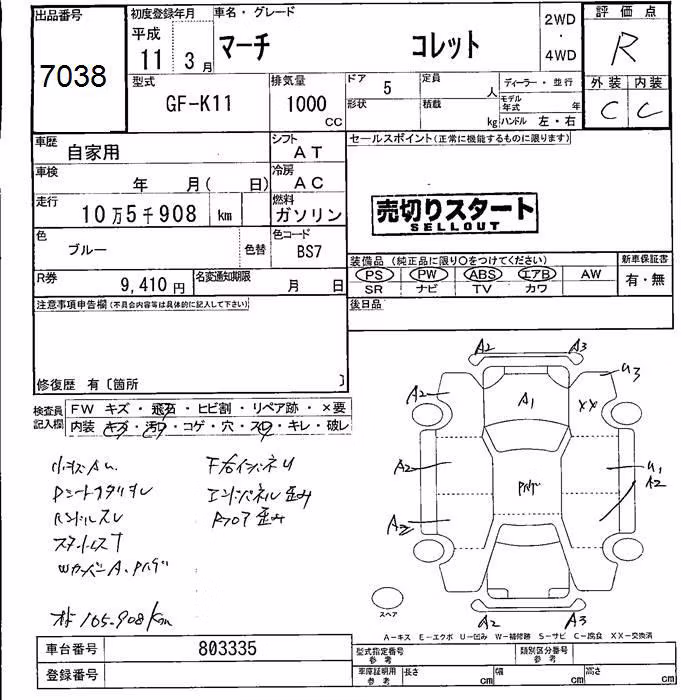 出品番号
7038
初度登録年月
平成
11 3月
車名・グレード
マーチ コレット
2WD
・
4WD
評価点
R
外装 内装
C C
型式
GF-K11
排気量
1000
CC
ドア
5
定員
人
形状
積載
kg
ディーラー・並行
モデル年式 年
ハンドル 左・右
車歴
自家用
シフト
AT
車検
年 月( 日)
冷房
AC
走行
10万5千908 km
燃料
ガソリン
色
ブルー
色替
色コード
BS7
R券
9,410円
名変通知期限
月 日
セールスポイント(正常に機能するものに限ります)
売切りスタート
SELLOUT
装備品(純正品に限り○をつけてください)
PS PW ABS エアB AW
SR ナビ TV カワ
新車保証書
有・無
後日品
注意事項申告欄(不具合内容等は具体的に記入して下さい)
修復歴 有〔箇所 〕
検査員記入欄
FW キズ・飛石・ヒビ割・リペア跡・×要
内装・キズ・汚レ・コゲ・穴・スレ・キレ・破レ
ハンドルスレ
エンドパネル歪み
Rフロア歪み
105.908km
A2 A3
A2 A1 XX U3
A2 U1
A2 A2
A2 A3
スペア
A-キス E-エクボ U-凹み W-補修跡 S-サビ C-腐食 XX-交換済
車台番号
803335
登録番号
型式指定番号
参考
類別区分番号
参考
車庫証明用
参考
長さ cm
幅 cm
高さ cm